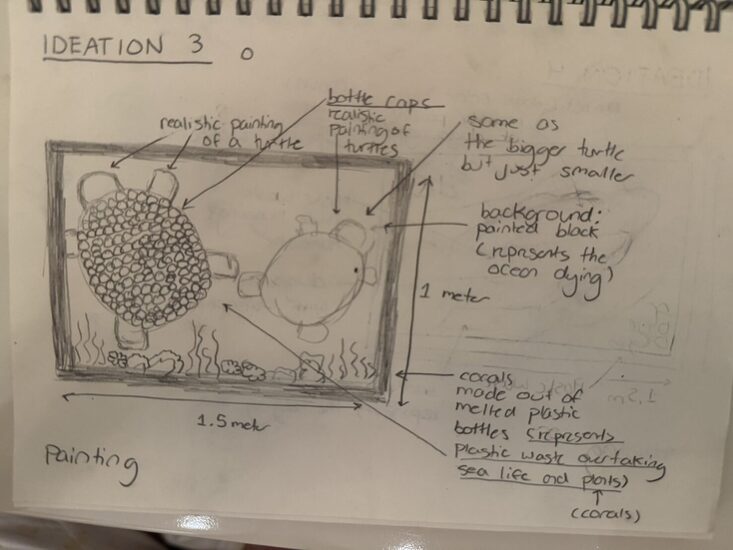 IDEATION 3
realistic painting
of a turtle
bottle caps
realistic
painting of
turtles
same as
the bigger turtle
but just smaller
background:
painted black
(represents the
ocean dying)
1 meter
corals
made out of
melted plastic
bottles (represents
plastic waste overtaking
sea life and plants)
(corals)
1.5 meter
Painting